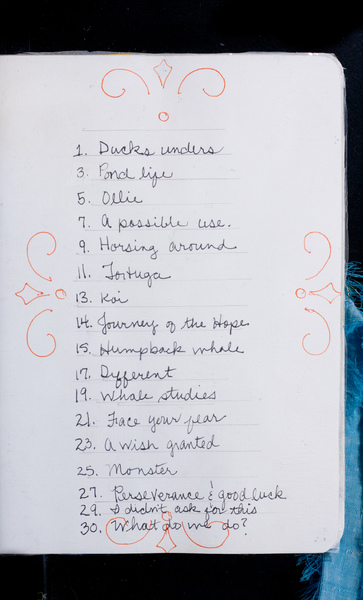 1. Ducks unders
3. Pond life
5. Ollie
7. A possible use.
9. Horsing around
11. Tortuga
13. Koi
14. Journey of the Hope
15. Humpback whale
17. Different
19. Whale studies
21. Face your fear
23. A wish granted
25. Monster
27. Perseverance & good luck
29. I didn't ask for this
30. What do we do?